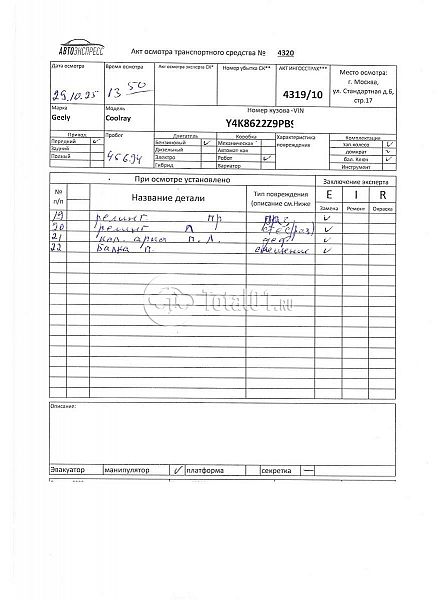 АВТОЭКСПРЕСС
Акт осмотра транспортного средства № 4320
Дата осмотра
Время осмотра
Акт осмотра эксперта СК*
Номер убытка СК**
АКТ ИНГОССТРАХ***
Место осмотра:
г. Москва,
ул. Стандартная д.6,
стр.17
29.10.25
13 50
4319/10
Марка
Модель
Номер кузова -VIN
Geely
Coolray
Y4K8622Z9PB
Привод
Пробег
Двигатель
Коробка
Характеристика повреждения
Комплектация
Передний ✓
Бензиновый ✓
Механическая
зап.колесо ✓
Задний
Дизельный
Автомат-кая
домкрат ✓
Полный
Электро
Робот ✓
бал. Ключ ✓
Гибрид
Вариатор
Инструмент
При осмотре установлено
Заключение эксперта
№ п/п
Название детали
Тип повреждения
(описание см.Ниже
E I R
Замена Ремонт Окраска
19 релинг пр раз. ✓
20 релинг л ✓
21 арка п.л. деф ✓
22 Балка п. смещение ✓
Total01.RU
Описание:
Эвакуатор манипулятор ✓ платформа секретка —